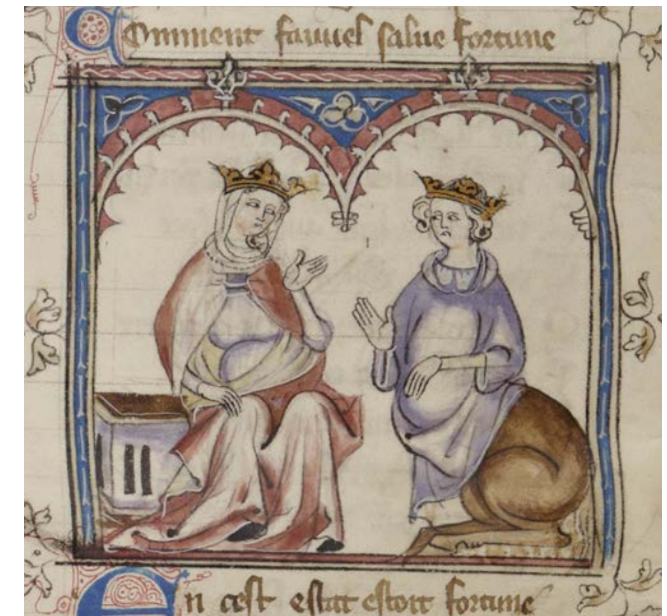 Comment fauuel salue fortune
En cest estat estoit fortune